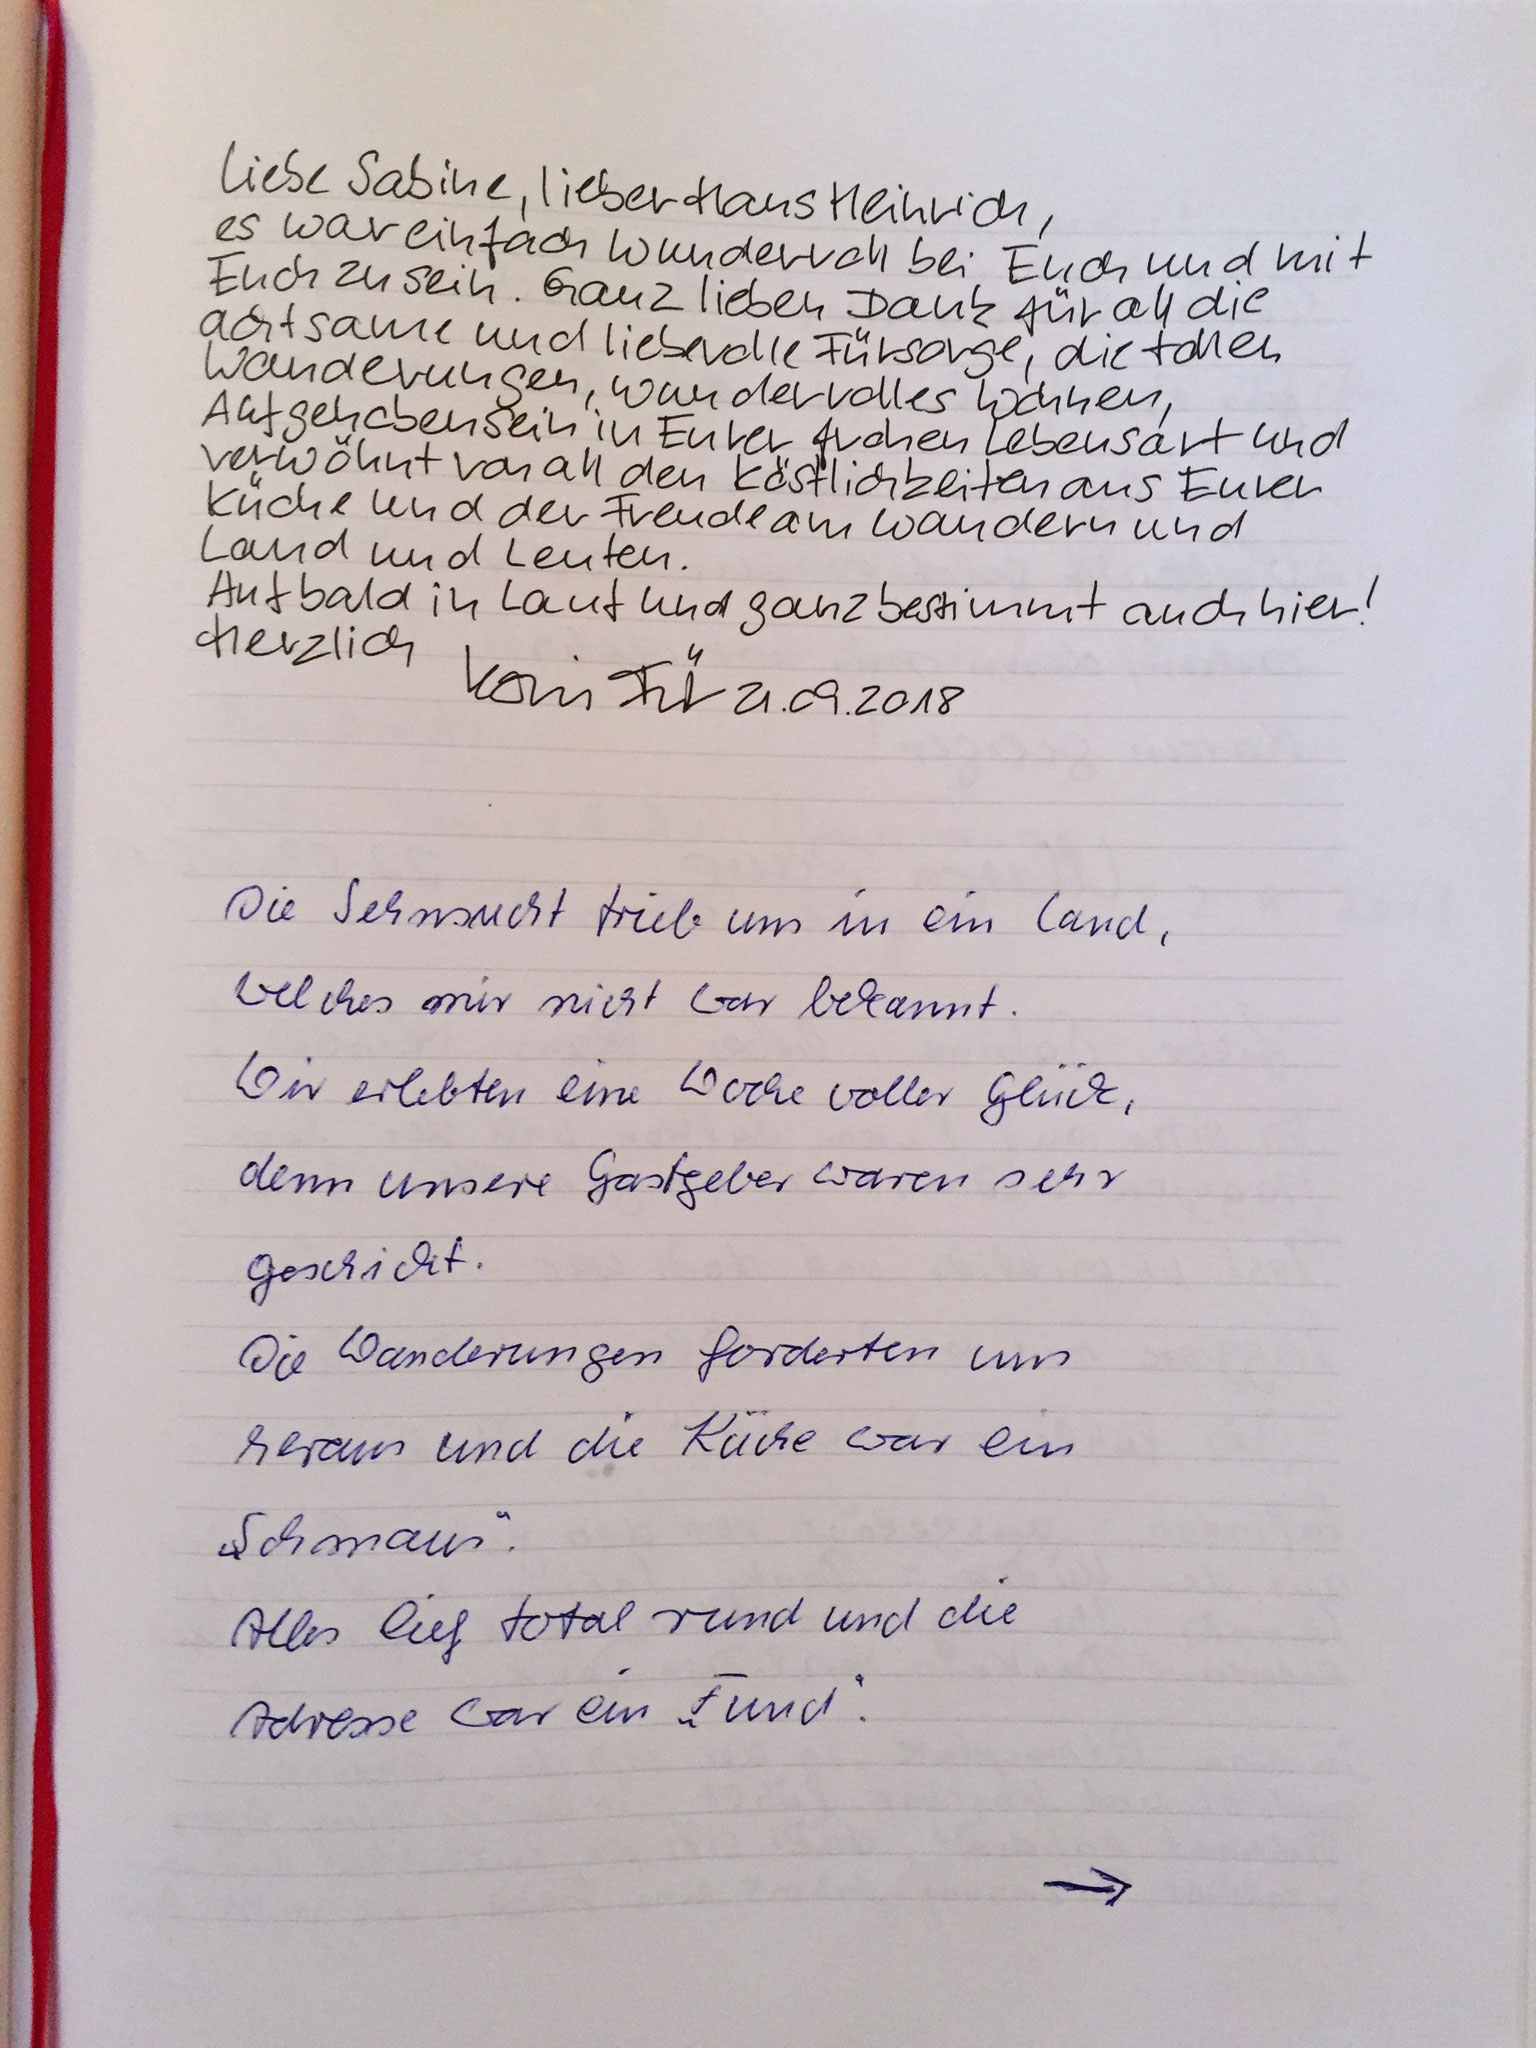 Liebe Sabine, lieber Hans Heinrich,
es war einfach wundervoll bei Euch und mit
Euch zu sein. Ganz lieben Dank für all die
achtsame und liebevolle Fürsorge, die tollen
Wanderungen, wundervolles Wohnen,
Aufgehobensein in Eurer frohen Lebensart und
verwöhnt von all den Köstlichkeiten aus Eurer
Küche und der Freude am Wandern und
Land und Leuten.
Auf bald in Lauf und ganz bestimmt auch hier!
Herzlich
21.09.2018
Die Sehnsucht trieb uns in ein Land,
welches mir nicht war bekannt.
Wir erlebten eine Woche voller Glück,
denn unsere Gastgeber waren sehr
geschickt.
Die Wanderungen forderten uns
heraus und die Küche war ein
„Schmaus".
Alles lief total rund und die
Adresse war ein „Fund".
→